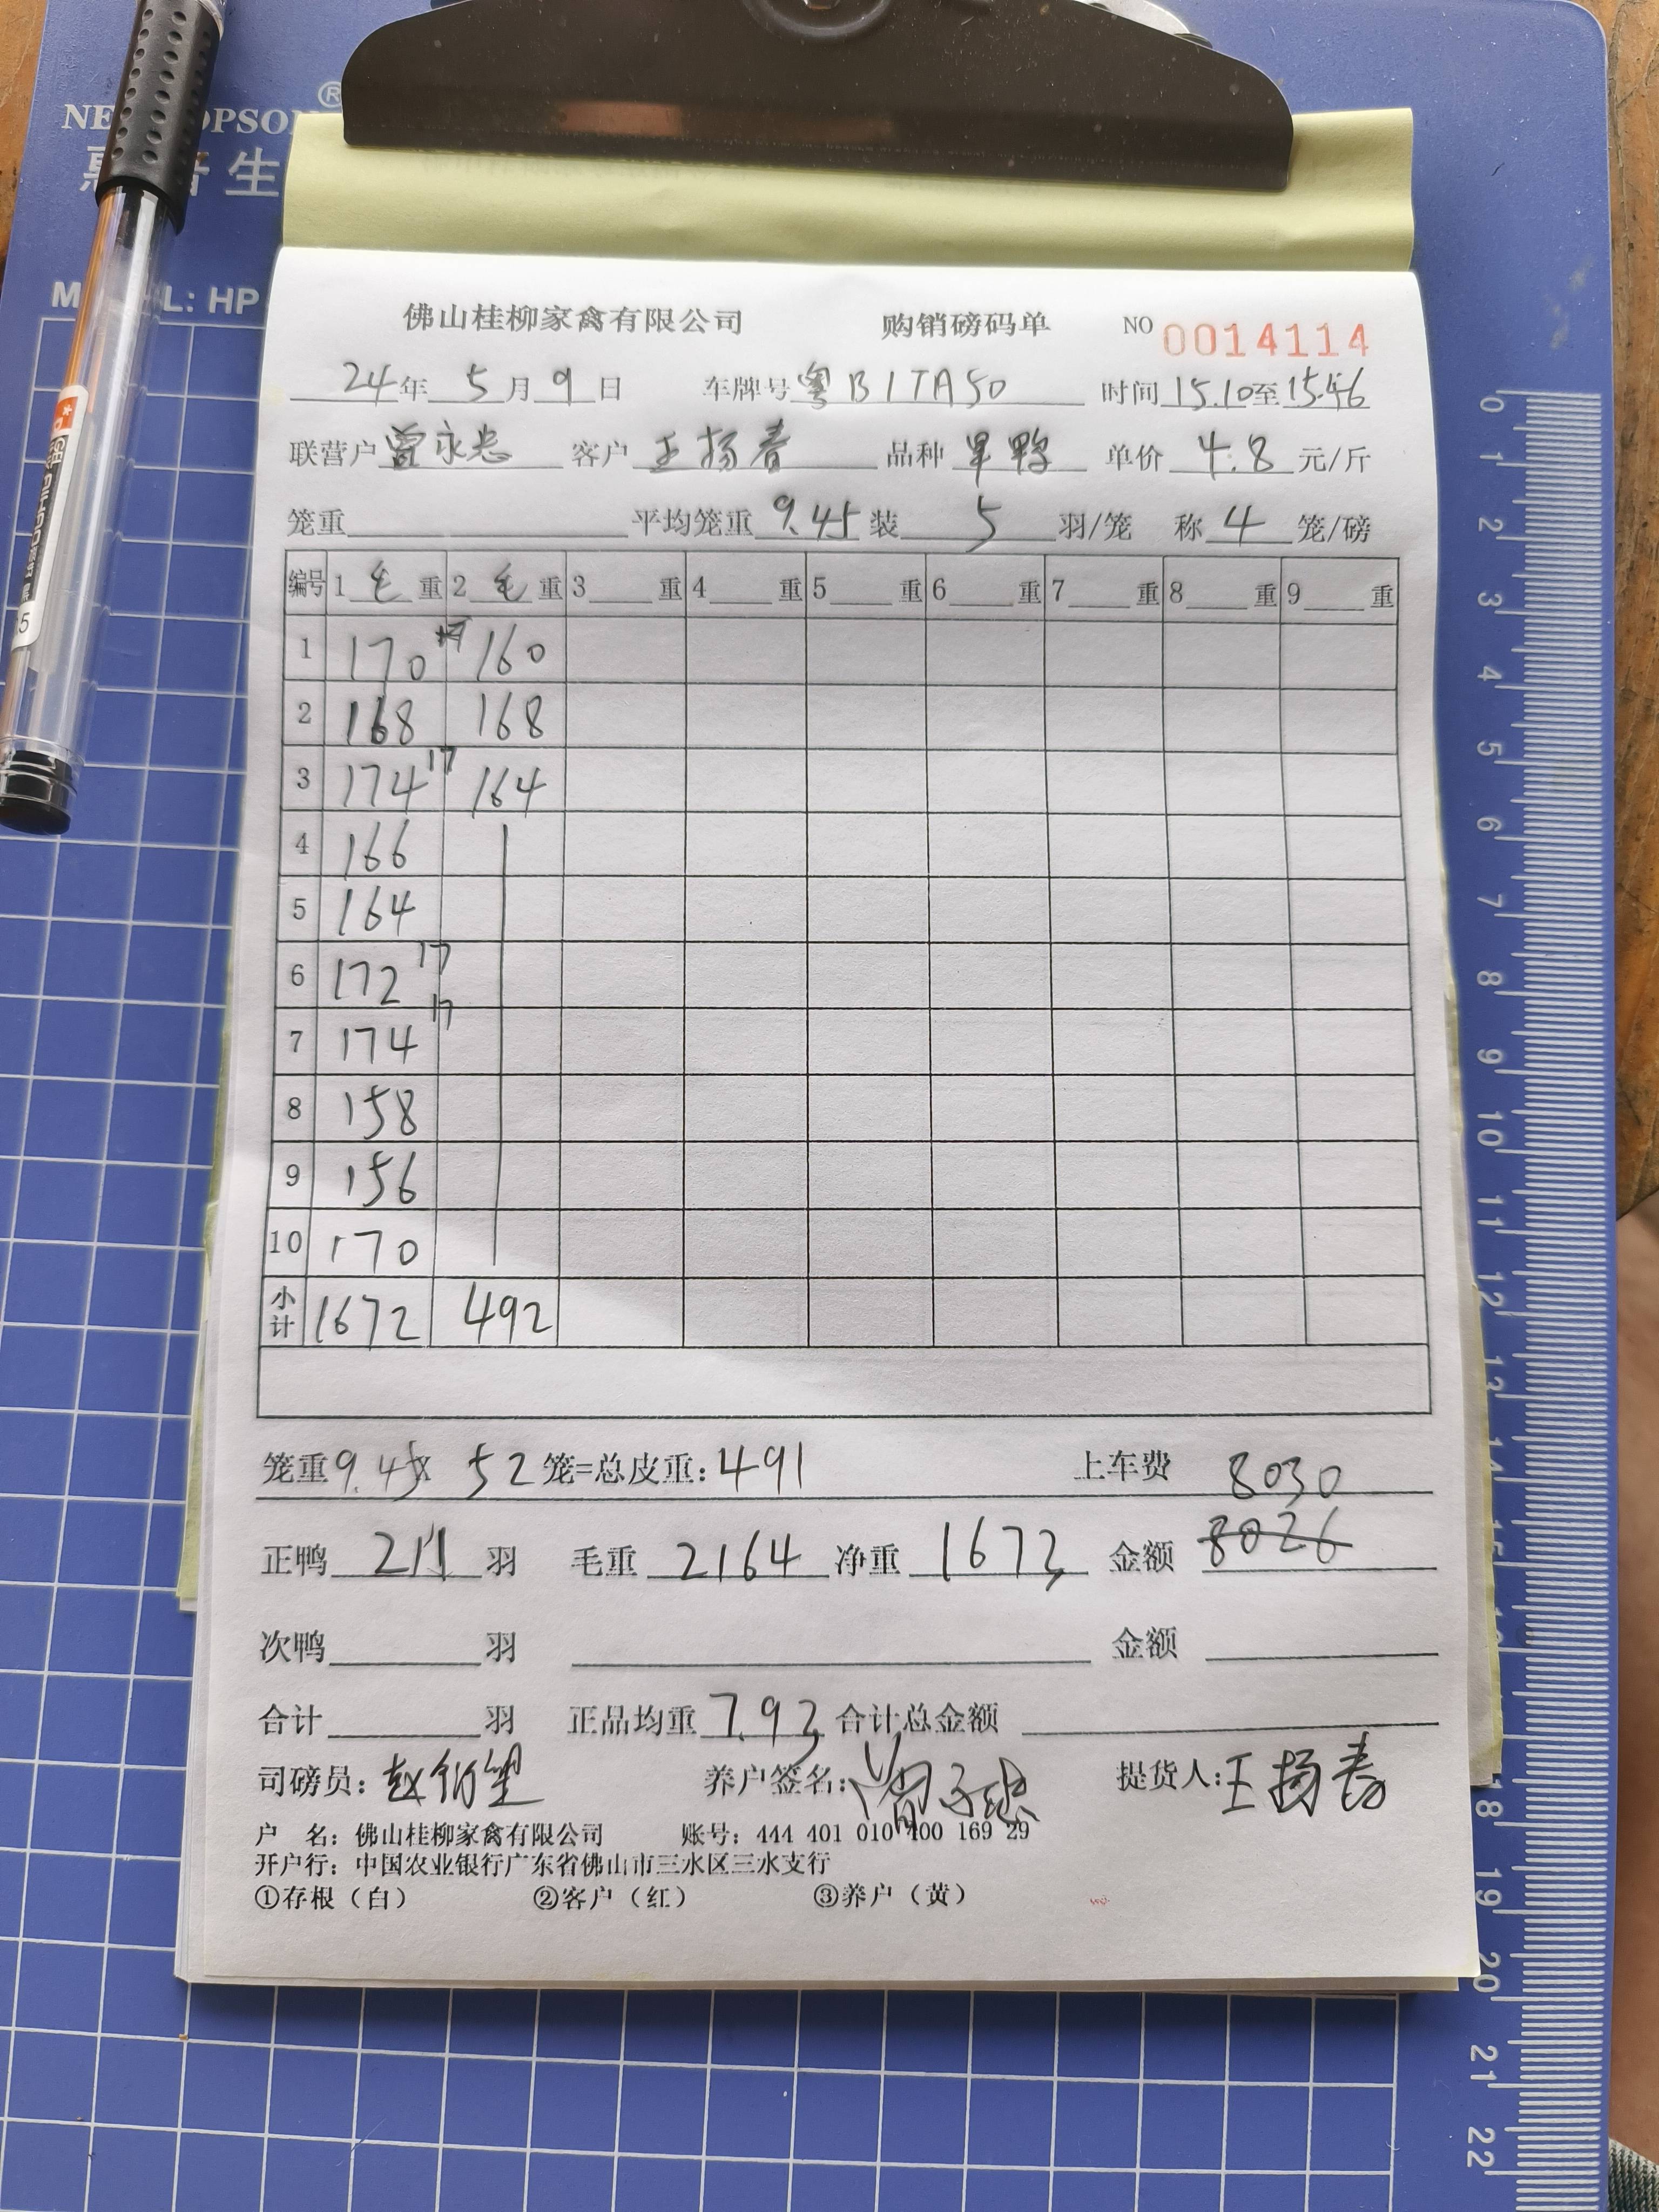 NE OPSON®
生
M L: HP
佛山桂柳家禽有限公司 购销磅码单 NO 0014114
24年 5月9日 车牌号粤B1TA50 时间15.10至15.46
联营户曾永忠 客户王扬春 品种旱鸭 单价4.8元/斤
笼重 平均笼重9.45装5羽/笼 称4笼/磅
编号 1毛重 2毛重 3重 4重 5重 6重 7重 8重 9重
1 170 17 160
2 168 168
3 174 17 164
4 166
5 164
6 172 17
7 174 17
8 158
9 156
10 170
小计 1672 492
笼重9.45x 52笼=总皮重:491 上车费 8030
正鸭211羽 毛重2164净重1673 金额8026
次鸭 羽 金额
合计 羽 正品均重7.93合计总金额
司磅员: 养户签名: 提货人:王扬春
户 名: 佛山桂柳家禽有限公司 账号: 444 401 010 400 169 29
开户行: 中国农业银行广东省佛山市三水区三水支行
①存根（白） ②客户（红） ③养户（黄）
0 1 2 3 4 5 6 7 8 9 10 11 12 13 14 15 18 19 20 21 22